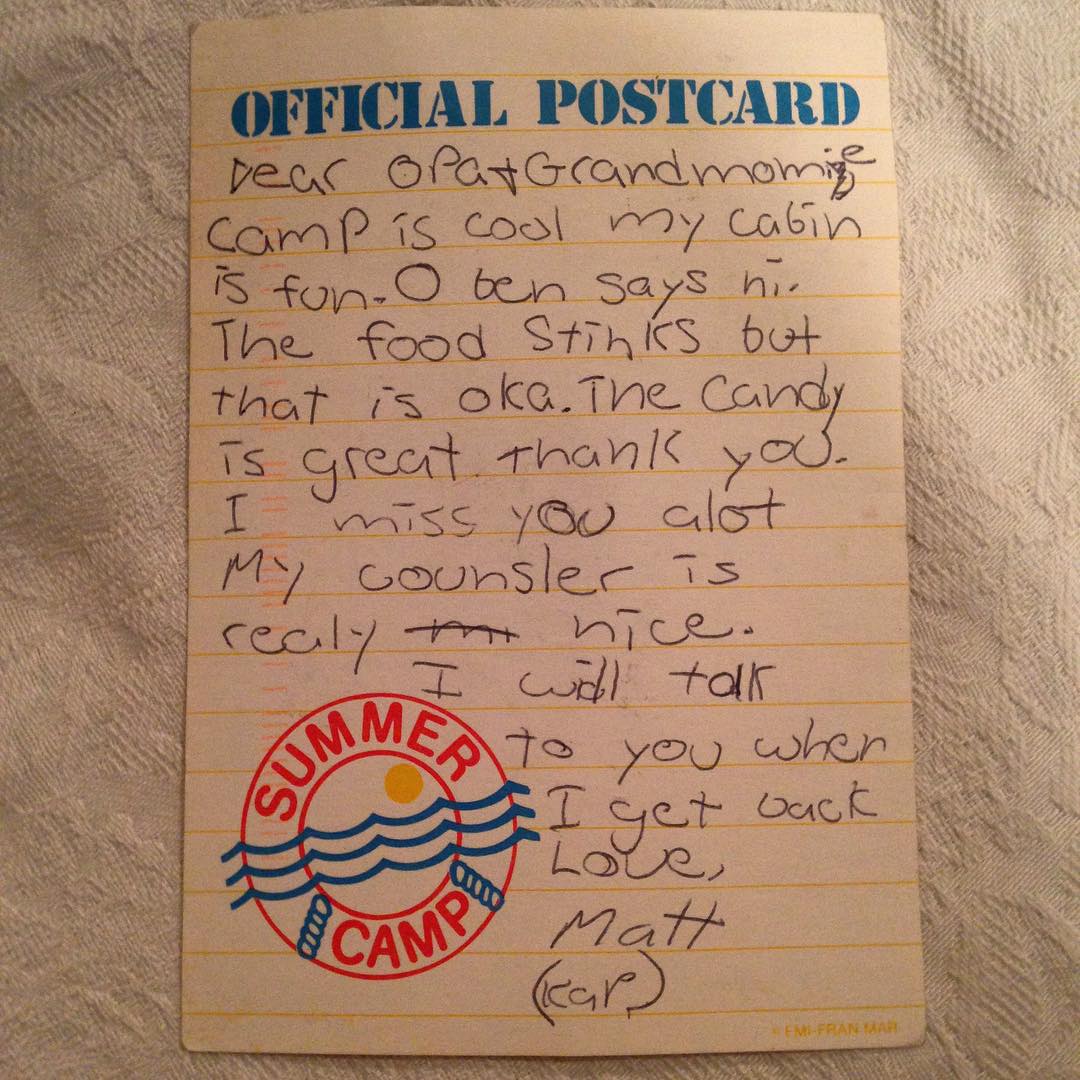 OFFICIAL POSTCARD
Dear OPa + Grandmomie
Camp is cool my cabin
is fun. O ben says hi.
The food Stinks but
that is oka. The Candy
is great thank you.
I miss you alot
My counsler is
realy nice.
I will talk
to you when
I get back
Love,
Matt
(Kap)
SUMMER
CAMP
© EMI-FRAN MAR